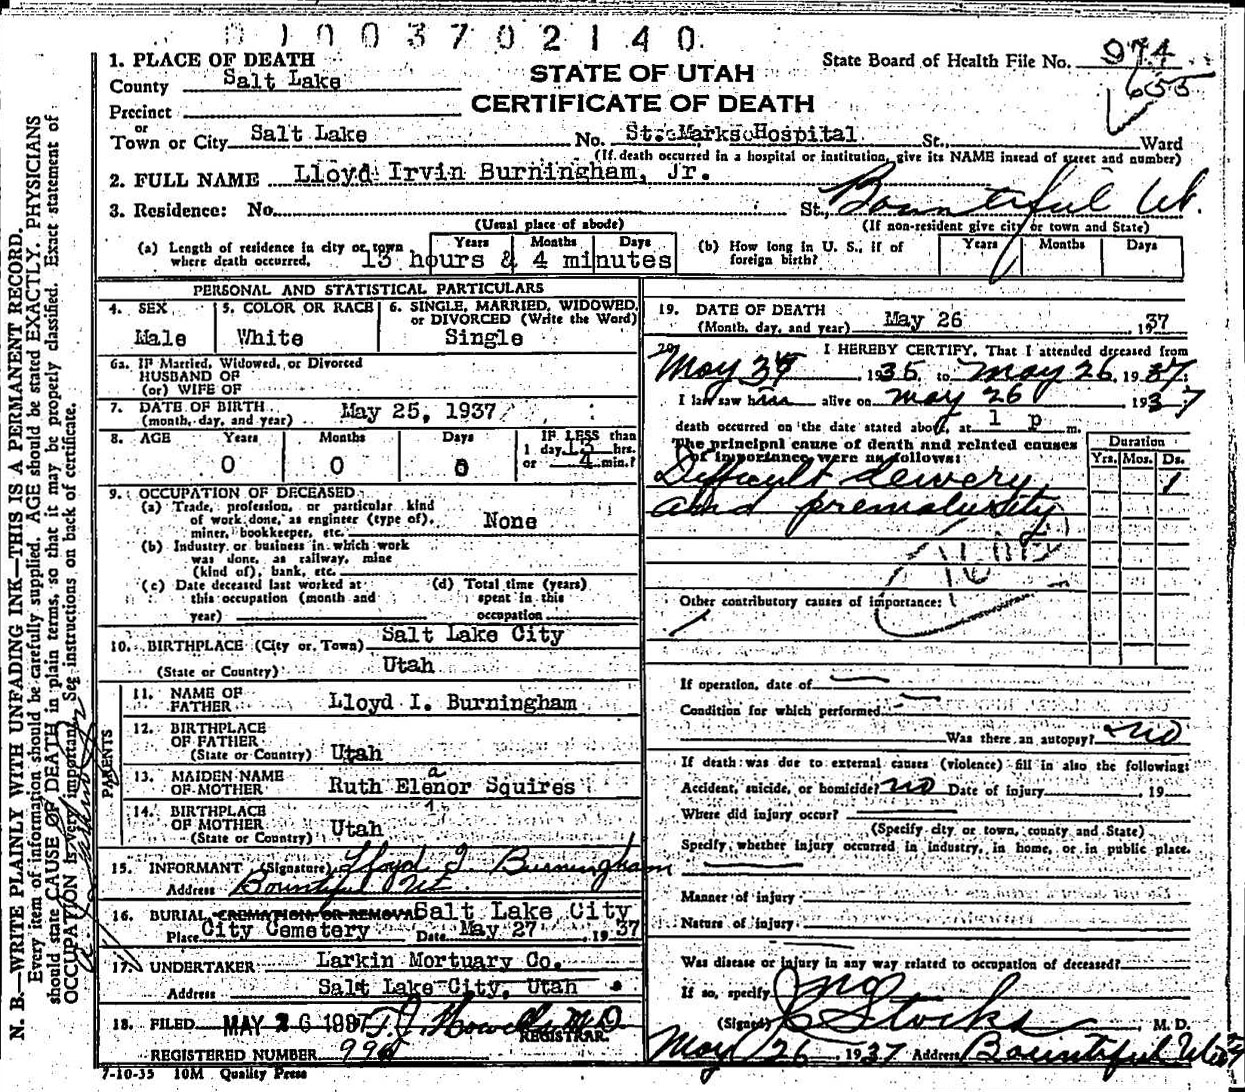 0 1 0 0 3 7 0 2 1 4 0.
1. PLACE OF DEATH
County Salt Lake
STATE OF UTAH
State Board of Health File No. 974
655
Precinct
CERTIFICATE OF DEATH
or
Town or City Salt Lake No. St. Marks Hospital St., Ward
(If death occurred in a hospital or institution, give its NAME instead of street and number)
2. FULL NAME Lloyd Irvin Burningham, Jr.
3. Residence: No. St., Bountiful Ut.
(Usual place of abode) (If non-resident give city or town and State)
(a) Length of residence in city or town where death occurred. Years Months Days 13 hours & 4 minutes
(b) How long in U. S., if of foreign birth? Years Months Days
PERSONAL AND STATISTICAL PARTICULARS
4. SEX Male
5. COLOR OR RACE White
6. SINGLE, MARRIED, WIDOWED, or DIVORCED (Write the Word) Single
6a. IF Married, Widowed, or Divorced
HUSBAND OF
(or) WIFE OF
7. DATE OF BIRTH
(month, day, and year) May 25, 1937
8. AGE Years Months Days IF LESS than
0 0 0 1 day 13 hrs.
or 4 min.?
9. OCCUPATION OF DECEASED
(a) Trade, profession, or particular kind
of work done, as engineer (type of),
miner, bookkeeper, etc. None
(b) Industry or business in which work
was done, as railway, mine
(kind of), bank, etc.
(c) Date deceased last worked at
this occupation (month and
year)
(d) Total time (years)
spent in this
occupation
10. BIRTHPLACE (City or Town) Salt Lake City
(State or Country) Utah
PARENTS
11. NAME OF
FATHER Lloyd I. Burningham
12. BIRTHPLACE
OF FATHER
(State or Country) Utah
13. MAIDEN NAME
OF MOTHER Ruth Elenor Squires
a
14. BIRTHPLACE
OF MOTHER
(State or Country) Utah
15. INFORMANT (Signature) Lloyd I. Burningham
Address Bountiful Ut.
16. BURIAL, CREMATION, OR REMOVAL Salt Lake City
Place City Cemetery Date May 27 1937
17. UNDERTAKER Larkin Mortuary Co.
Address Salt Lake City, Utah
18. FILED MAY 26 1937 T. J. Howells M D
REGISTRAR.
REGISTERED NUMBER
7-10-35 10M Quality Press
19. DATE OF DEATH
(Month, day, and year) May 26 1937
20. I HEREBY CERTIFY, That I attended deceased from
May 1936 to May 26, 1937;
I last saw him alive on May 26 1937
death occurred on the date stated above, at 1 p m.
The principal cause of death and related causes
of importance were as follows:
Duration
Yrs. Mos. Ds.
Difficult delivery 1
and prematurity
Other contributory causes of importance:
If operation, date of
Condition for which performed
Was there an autopsy? no
If death was due to external causes (violence) fill in also the following:
Accident, suicide, or homicide? no Date of injury 19
Where did injury occur?
(Specify city or town, county and State)
Specify whether injury occurred in industry, in home, or in public place.
Manner of injury
Nature of injury
Was disease or injury in any way related to occupation of deceased?
If so, specify no
(Signed) Stocks M. D.
May 26, 1937 Address Bountiful Utah
N. B.—WRITE PLAINLY WITH UNFADING INK—THIS IS A PERMANENT RECORD.
Every item of information should be carefully supplied. AGE should be stated EXACTLY. PHYSICIANS
should state CAUSE OF DEATH in plain terms, so that it may be properly classified. Exact statement of
OCCUPATION is very important. See instructions on back of certificate.